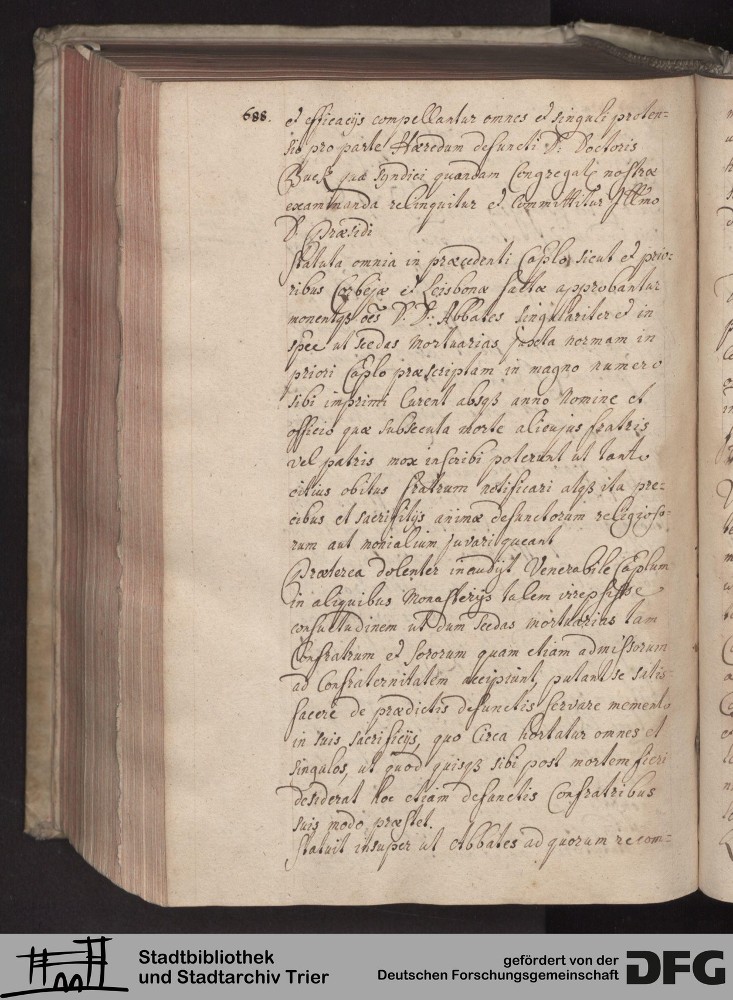 688.
et efficacijs compellantur omnes et singuli proten=
sio pro parte Hæredum defuncti D: Doctoris
quæ syndici quondam Congreg: nostræ
examinanda relinquitur et Committitur Illmo
D. Præsidi
Statuta omnia in præcedenti Caplo, sicut et prio=
ribus Corbejæ et Leisbonæ factæ approbantur
monentqȝ oēs D. D: Abbates singulariter et in
spēe ut scedas mortuarias juxta normam in
priori Caplo præscriptam in magno numero
sibi imprimi Curent absqȝ anno Nomine et
officio quæ subsecuta morte alicujus fratris
vel patris mox inscribi poterunt ut tanto
citius obitus fratrum notificari atqȝ ita pre=
cibus et sacrifitijs animæ defunctorum religioso=
rum aut monialium juvari queant
Præterea dolenter inaudijt Venerabile Caplum
in aliquibus Monasterijs talem irrepsisse
consuetudinem ut dum scedas mortuarias tam
Confratrum et Sororum quam etiam admissorum
ad Confraternitatem accipiunt, putant se satis
facere de prædictis defunctis servare memento
in suis sacrificijs, quo Circa hortatur omnes et
singulos, ut quod quisqȝ sibi post mortem fieri
desiderat hoc etiam defunctis Confratribus
suis modo præstet.
Statuit insuper ut Abbates ad quorum recom=
Stadtbibliothek
und Stadtarchiv Trier
gefördert von der
Deutschen Forschungsgemeinschaft
DFG